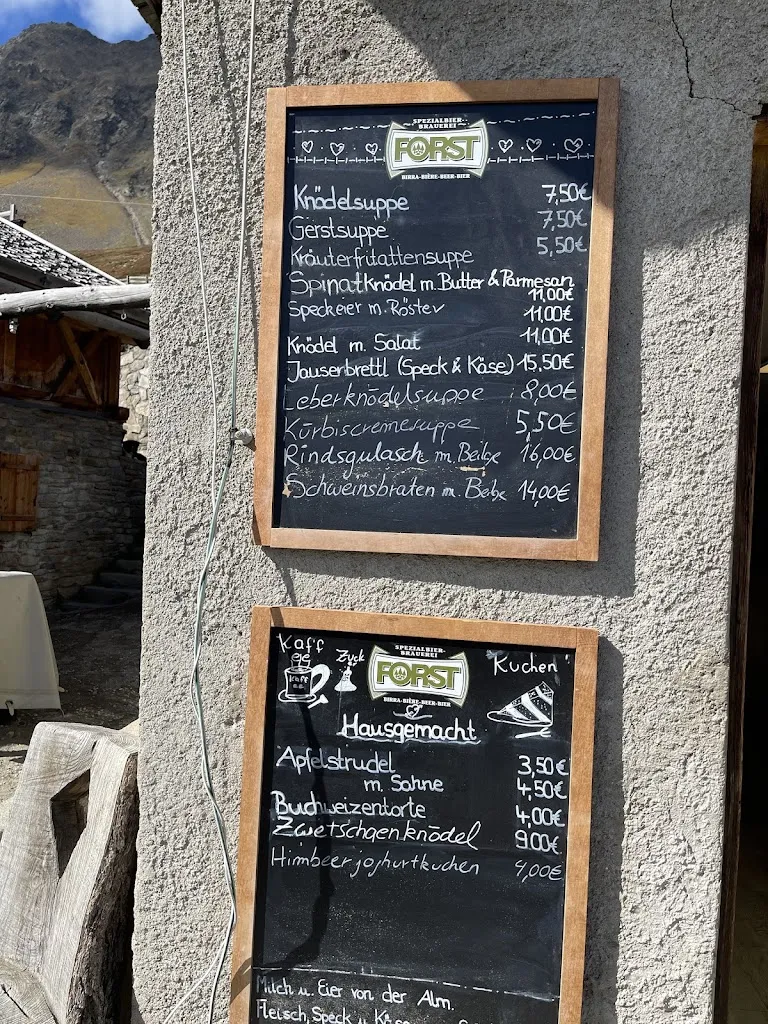 SPEZIALBIER-
BRAUEREI
FORST
BIRRA-BIÈRE-BEER-BIER
Knödelsuppe 7,50€
Gerstsuppe 7,50€
Kräuterfritattensuppe 5,50€
Spinatknödel m. Butter & Parmesan
11,00€
Speckeier m. Röster 11,00€
Knödel m. Salat 11,00€
Jauserbrettl (Speck & Käse) 15,50€
Leberknödelsuppe 8,00€
Kürbiscremesuppe 5,50€
Rindsgulasch m. Beilge 16,00€
Schweinsbraten m. 14,00€
Kaff
ee
Kaff
ee
Zuck
SPEZIALBIER-
BRAUEREI
FORST
BIRRA-BIÈRE-BEER-BIER
Kuchen
Hausgemacht
Apfelstrudel 3,50€
m. Sahne 4,50€
Buchweizentorte 4,00€
Zwetschgenknödel 9.00€
Himbeerjoghurtkuchen 4,00€
Milch u. Eier von der Alm.
Fleisch, Speck u.